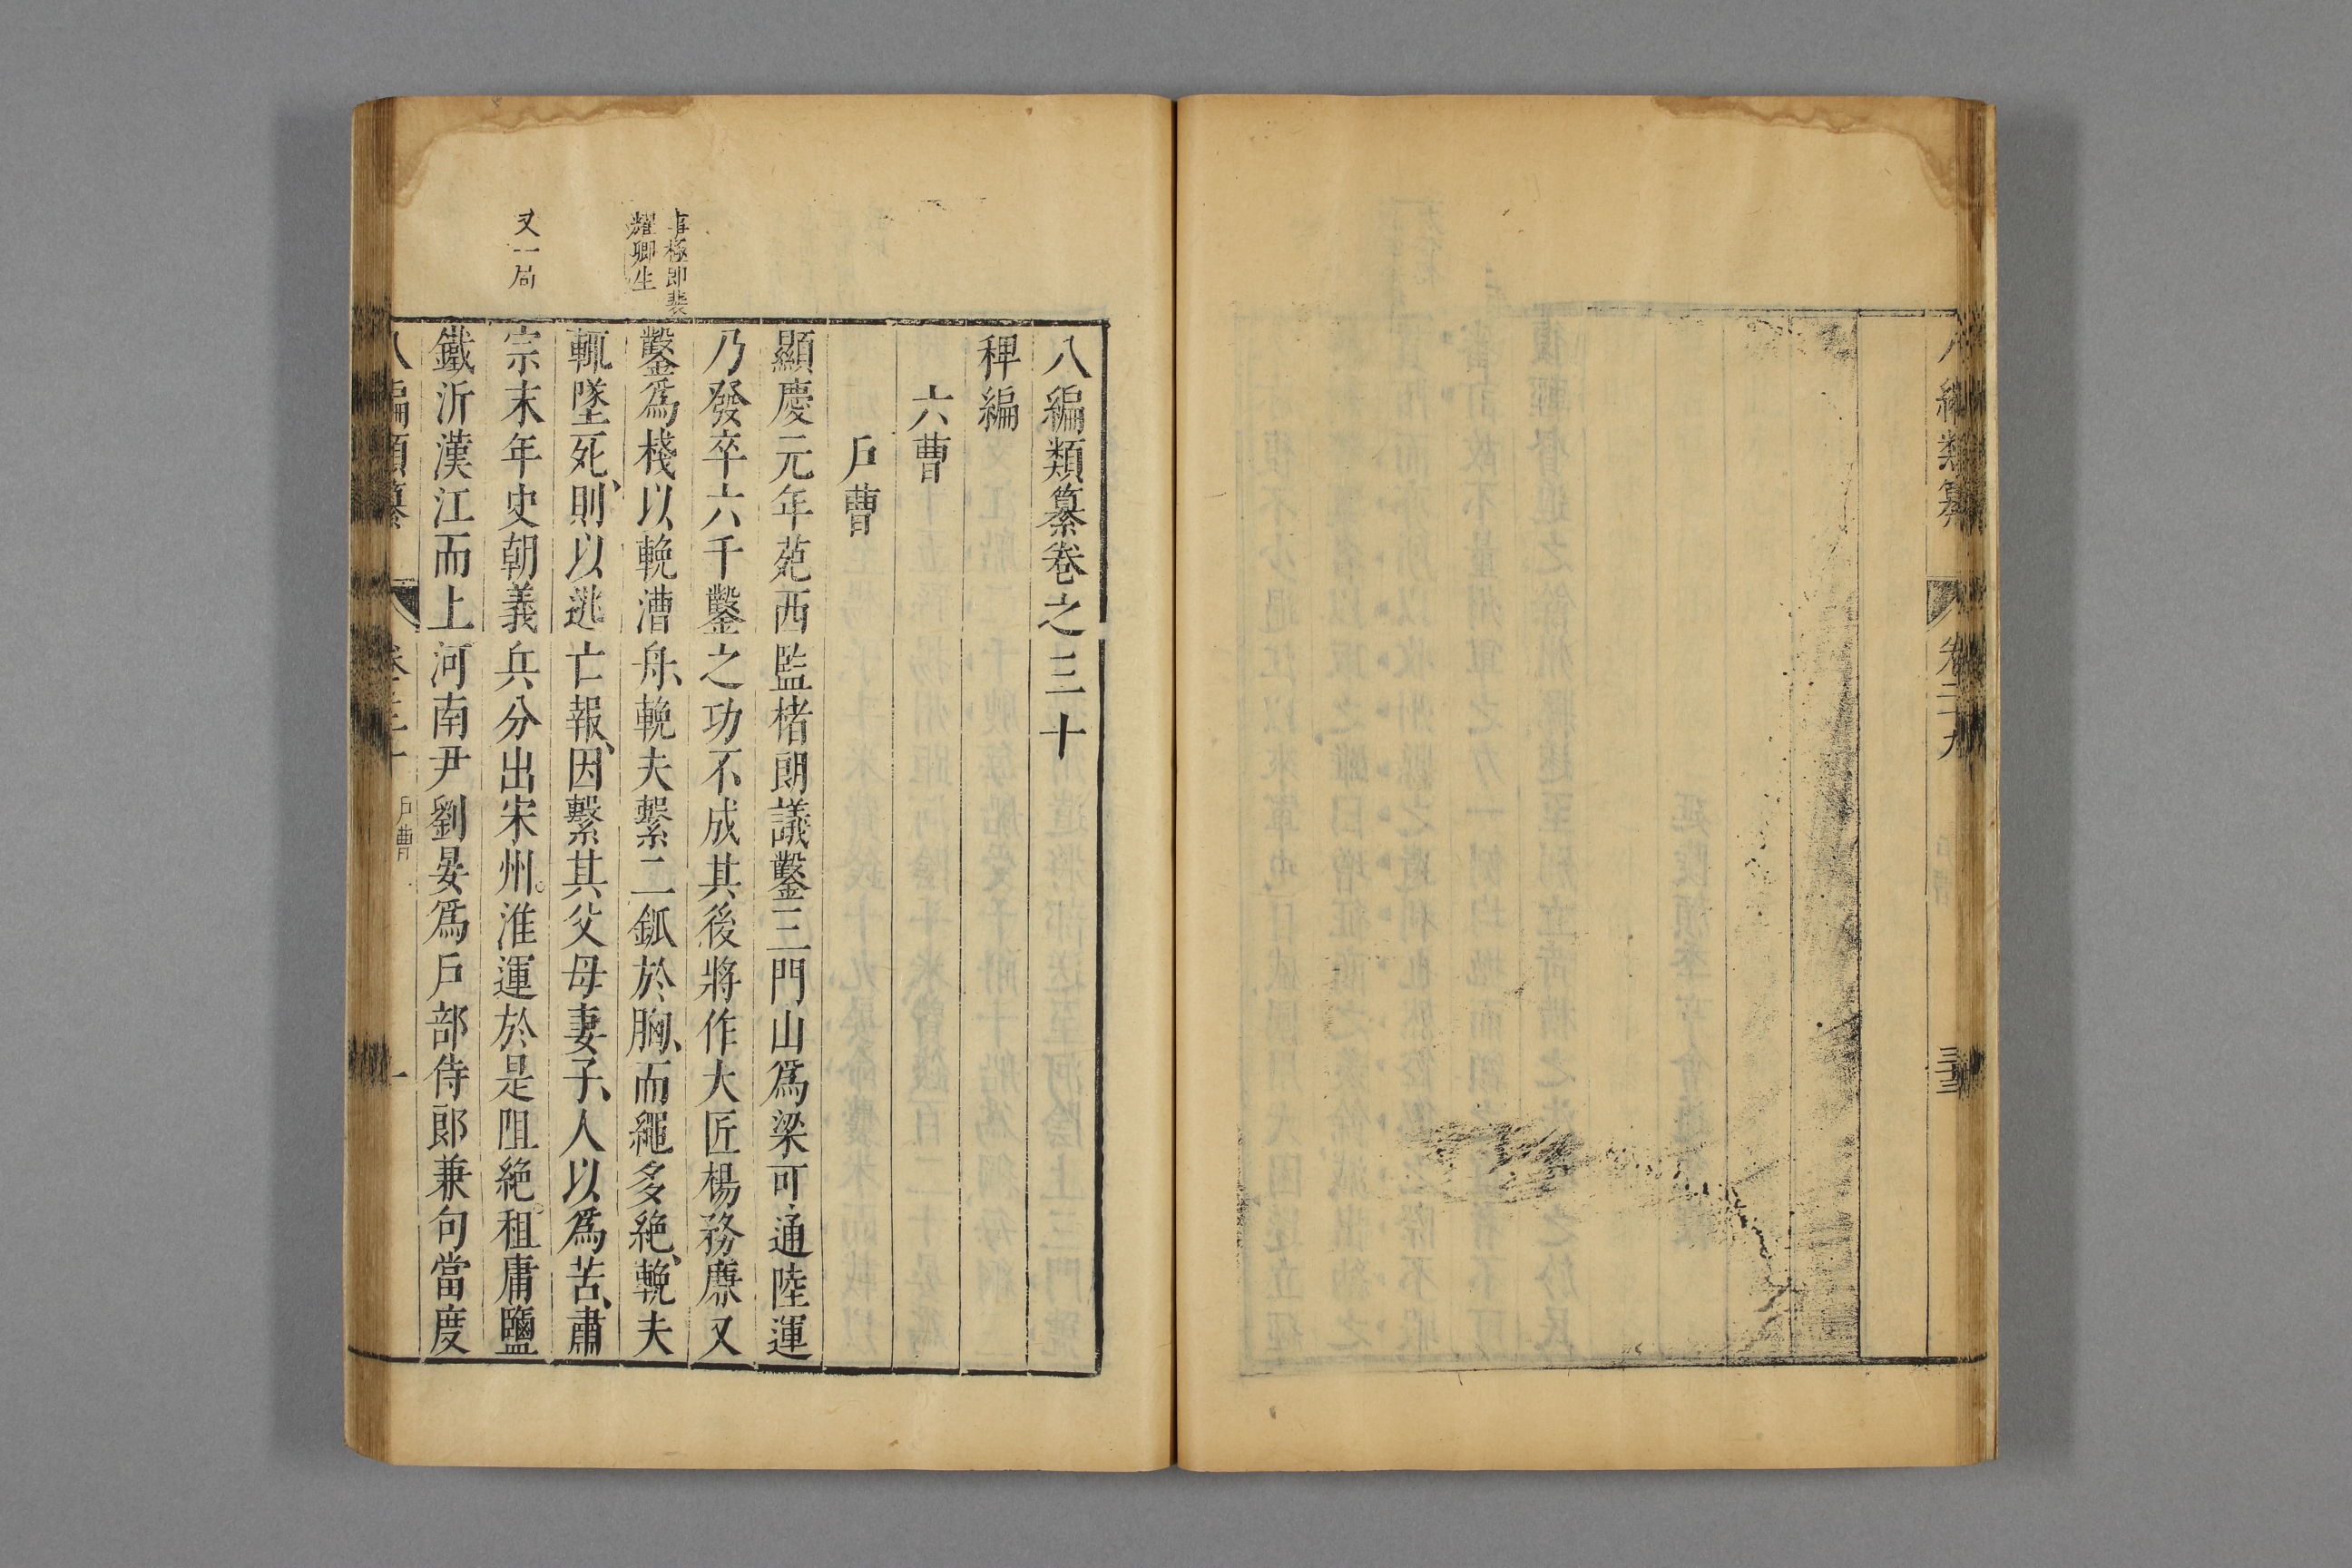 八編類纂
卷二十九
三十三
八編類纂卷之三十
稗編
六曹
戶曹
顯慶元年苑西監楮朗議鑿三門山爲梁可通陸運
乃發卒六千鑿之功不成其後將作大匠楊務廉又
鑿爲棧以輓漕舟、輓夫繫二鈲於胸、而繩多絶、輓夫
輒墜死、則以逃亡報、因繫其父母妻子、人以爲苦、肅
宗末年史朝義兵分出宋州。淮運於是阻絶。租庸鹽
鐵沂漢江而上河南尹劉晏爲戶部侍郎兼句當度
事極即裴
耀卿生
又一局
八編類纂
卷三十
戶曹
一